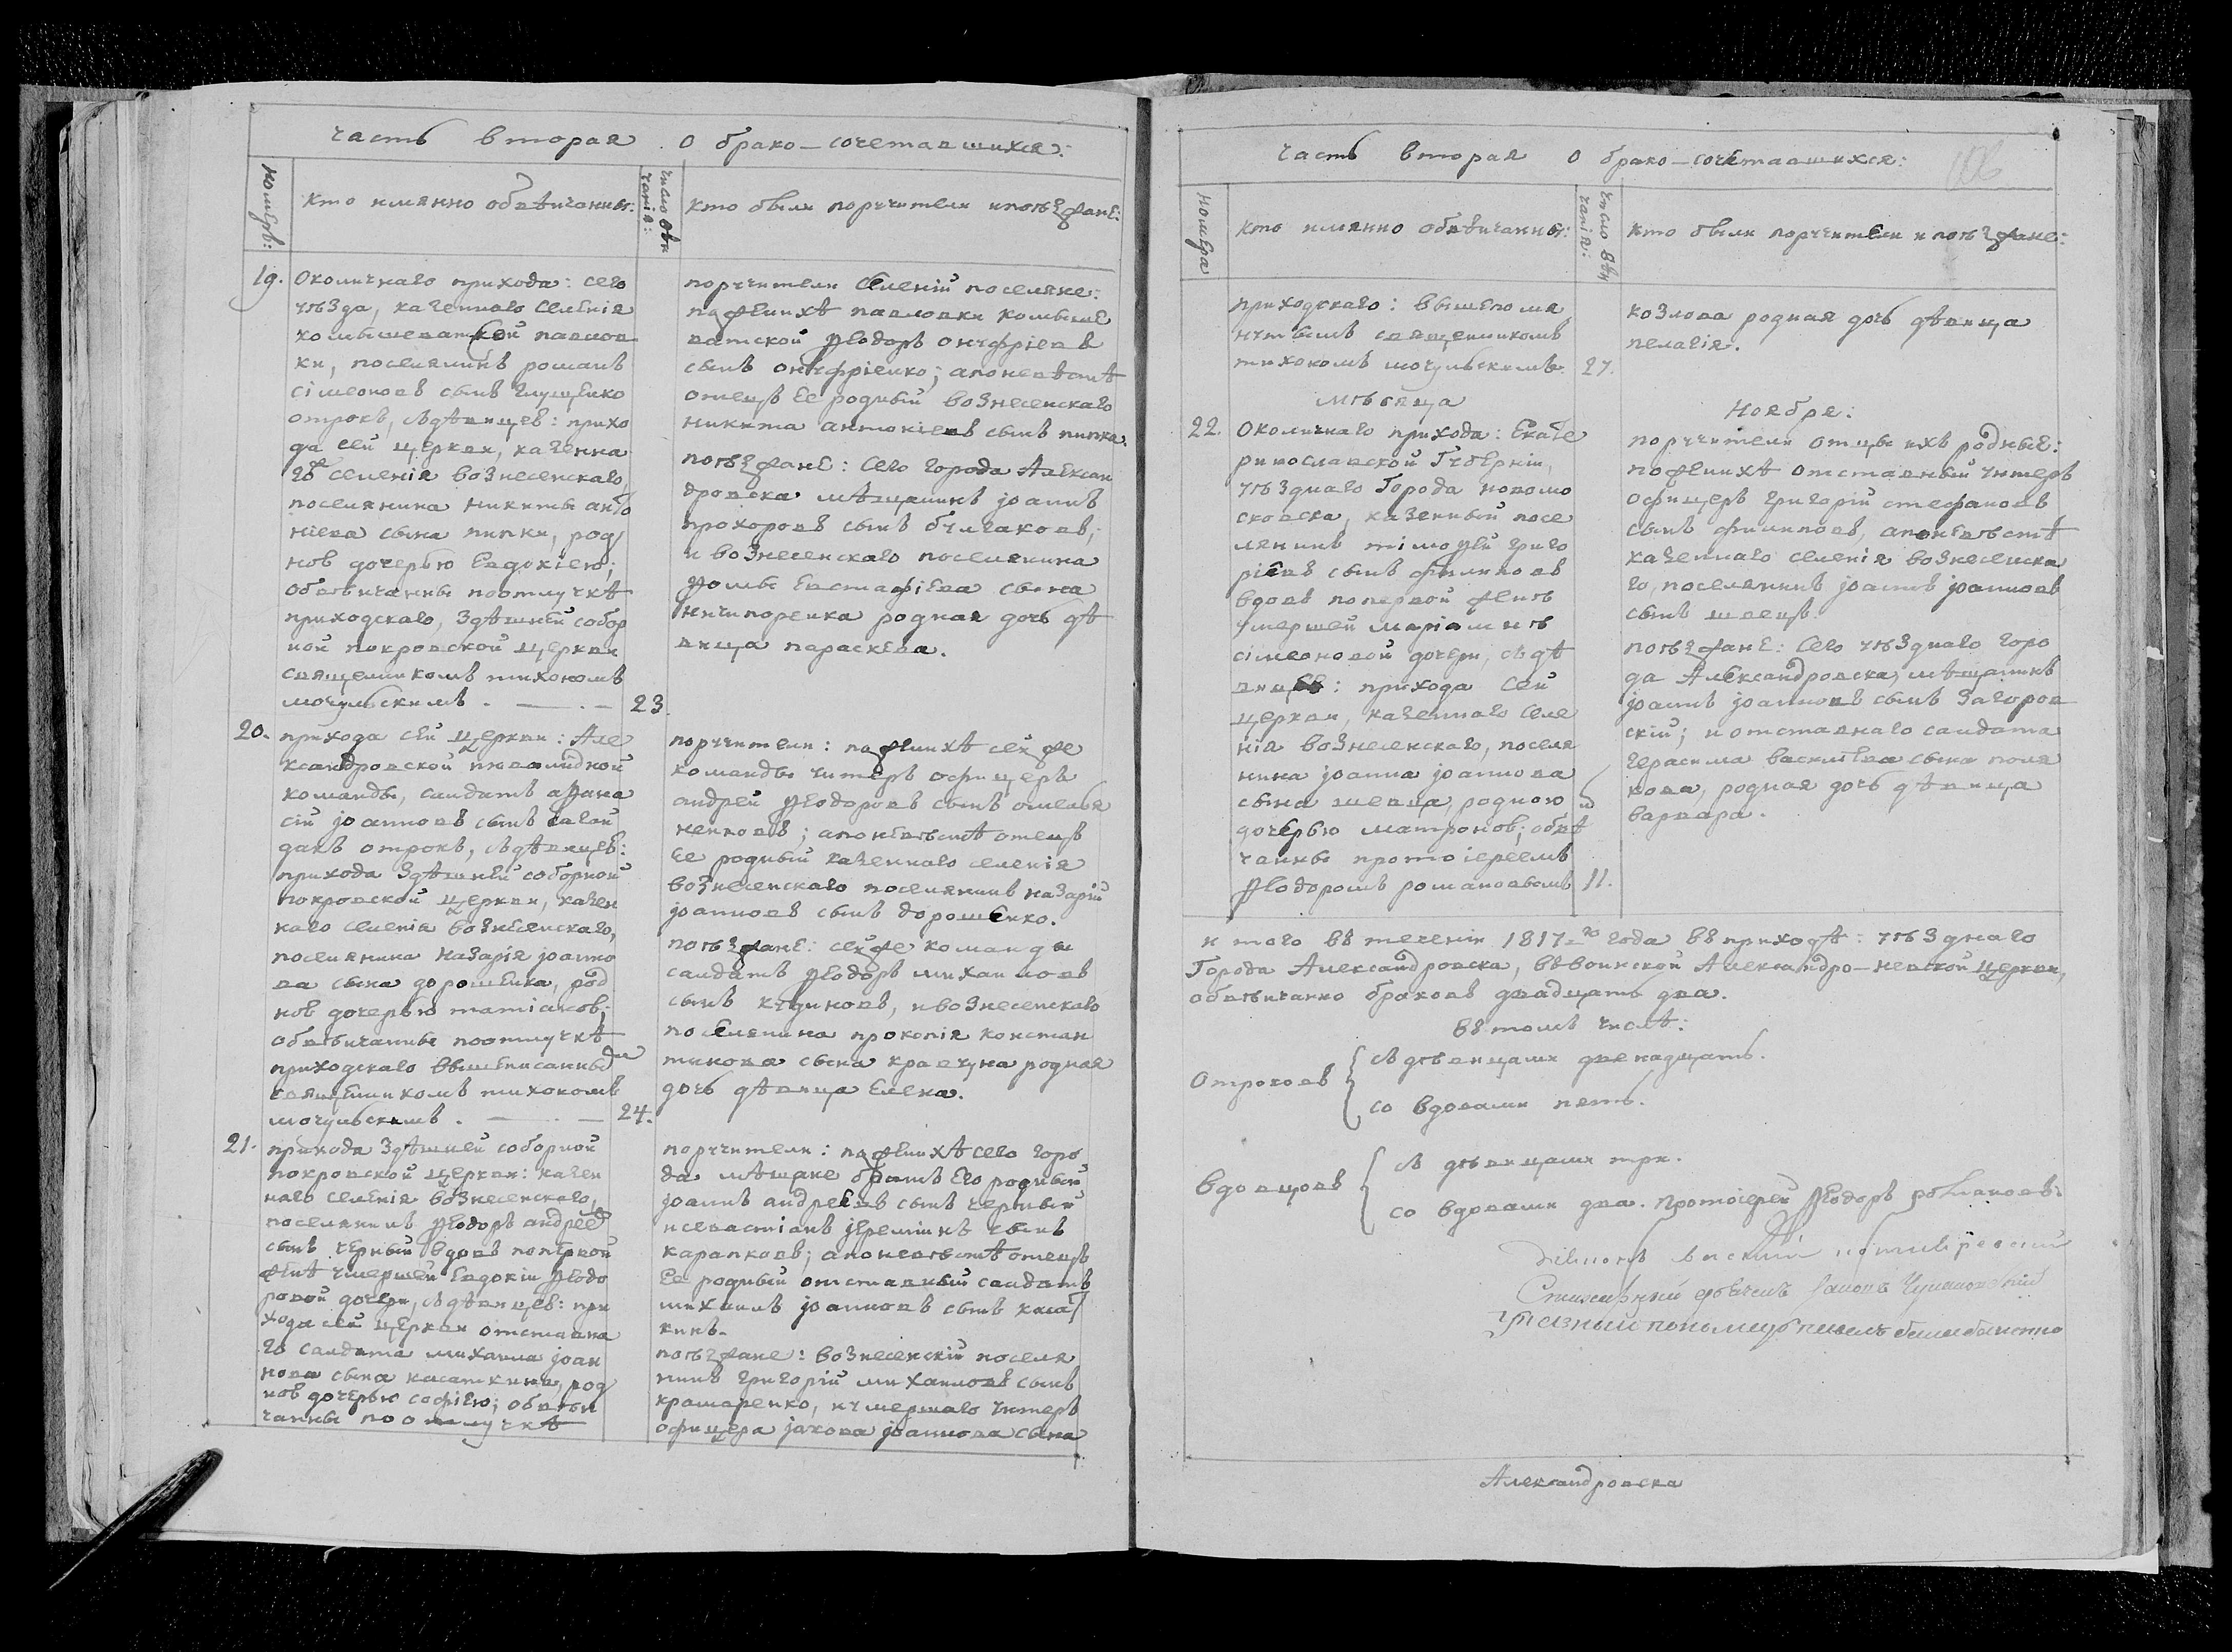 часть вторая о брако-сочетавшихся:
номеръ:
кто имянно обвѣнчаны:
число вѣн
чанія:
кто были поручители и поѣзжанѣ:
19.
Околичнаго прихода: сего
уѣзда, казеннаго селенія
комышеватской павлов
ки, поселянинъ романъ
сімеоновъ сынъ глущенко
отрокъ, съ дѣвицею: прихо
да сей церкви, казенна
го селенія вознесенскаго,
поселянина никиты анто
ніева сына пипки, род
ною дочерью Евдокіею;
обвѣнчанны поотлучкѣ
приходскаго, здѣшней собор
ной покровской церкви
священникомъ тихономъ
мочульскимъ.
23.
поручители селеній поселяне:
поженихѣ павловки комыше
ватской Ѳеодоръ онуфріевъ
сынъ онуфріенко; апоневѣстѣ
отецъ Ее родный вознесенскаго
никита антоніевъ сынъ пипка.
поѣзжанѣ: сего города Алексан
дровска мѣщанинъ іоаннъ
прохоровъ сынъ булгаковъ,
и вознесенскаго поселянина
Ѳомы Евстафіева сына
ничипоренка родная дочь дѣ
вица параскева.
20.
прихода сей церкви: Але
ксандровской инвалидной
команды, салдатъ аѲана
сій іоанновъ сынъ
отрокъ, съ дѣвицею:
прихода здѣшней соборной
покровской церкви, казен
наго селенія вознесенскаго,
поселянина назарія іоанно
ва сына дорошенка, род
ною дочерью татіаною;
обвѣнчанны поотлучкѣ
приходскаго вышеписаннымъ
священникомъ тихономъ
мочульскимъ.
24.
поручители: поженихѣ сей же
команды унтеръ офицеръ
андрей Ѳеодоровъ сынъ омелья
ненковъ; апоневѣстѣ отецъ
Ее родный казеннаго селенія
вознесенскаго поселянинъ назарій
іоанновъ сынъ дорошенко.
поѣзжанѣ: сей же команды
салдатъ Ѳеодоръ михайловъ
сынъ кудиновъ, и вознесенскаго
поселянина прокопія констан
тинова сына кравчуна родная
дочь дѣвица Елена.
21.
прихода здѣшней соборной
покровской церкви: казен
наго селенія вознесенскаго,
поселянинъ Ѳеодоръ андреевъ
сынъ черный вдовъ поперво́й
женѣ умершей Евдокіи Ѳеодо
ровой дочери, съ дѣвицею: при
хода сей церкви отставна
го салдата михаила іоан
нова сына касаткина, род
ною дочерью софіею; обвѣн
чанны поотлучкѣ
поручители: поженихѣ сего горо
да мѣщане братъ Его родный
іоаннъ андреевъ сынъ черный
исевастіанъ іереміинъ сынъ
карапковъ; апоневѣстѣ отецъ
Ее родный отставный салдатъ
михаилъ іоанновъ сынъ касат
кинъ.
поѣзжане: вознесенскій поселя
нинъ григорій михайловъ сынъ
крамаренко, и умершаго унтеръ
офицера іакова іоаннова сына
часть вторая о брако-сочетавшихся:
номера
кто имянно обвѣнчанны:
число вѣн
чанія:
кто были поручители и поѣзжане:
приходскаго: вышепомя
нутымъ священникомъ
тихономъ мочульскимъ.
27.
козлова родная дочь дѣвица
пелагія.
мѣсяца Ноября:
22.
околичнаго прихода: Екате
ринославской Губерніи,
уѣзднаго Города новомо
сковска, казенный посе
лянинъ тімоѲей григо
ріевъ сынъ филиповъ
вдовъ поперво́й женѣ
умершей маріамнѣ
сімеоновой дочери, съ дѣ
вицею: прихода сей
церкви, казеннаго селе
нія вознесенскаго, поселя
нина іоанна іоаннова
сына шевца, родною
дочерью матроною; обвѣ
чанны протоіереемъ
Ѳеодоромъ романовымъ
11.
поручители отцы ихъ родные:
поженихѣ отставный унтеръ
офицеръ григорій стефановъ
сынъ филиповъ, апоневѣстѣ
казеннаго селенія вознесенска
го, поселянинъ іоаннъ іоанновъ
сынъ шевцъ.
поѣзжанѣ: сего уѣзднаго горо
да Александровска, мѣщанинъ
іоаннъ іоанновъ сынъ загоров
скій; и отставнаго салдата
герасима василіева сына поля
кова, родная дочь дѣвица
варвара.
итого въ теченіи 1817-го года въ приходѣ: уѣзднаго
Города Александровска, въ воинской Александро-невской церкви,
обвѣнчанно браковъ двадцать два.
въ томъ числѣ:
Отроковъ
съ дѣвицами двенадцать.
со вдовами пять.
вдовцовъ
съ дѣвицами три.
со вдовами два. Протоіерей Ѳеодоръ романовъ.
Александровска